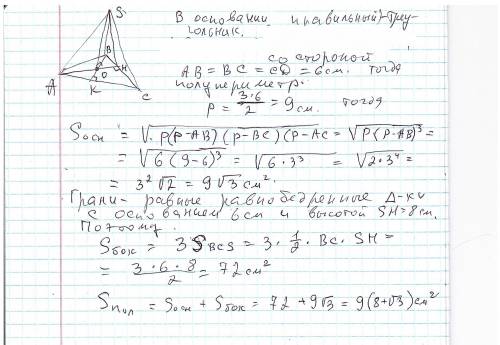 S
B
O
H
A
K
C
В основании правильный треу-
гольник.
со стороной
AB = BC = CD = 6 см. тогда
полупериметр.
P = 3·6/2 = 9 см. тогда
Sосн = √P(P-AB)(P-BC)(P-AC = √P(P-AB)³ =
= √6(9-6)³ = √6·3³ = √2·3⁴ =
= 3²√2 = 9√3 см².
Грани- равные равнобедренные Δ-ки
с основанием 6 см и высотой SH = 8 см.
Поэтому
Sбок = 3 S BCS = 3 · 1/2 · BC · SH =
= 3·6·8/2 = 72 см²
Sпол = Sосн + Sбок = 72 + 9√3 = 9(8+√3) см²